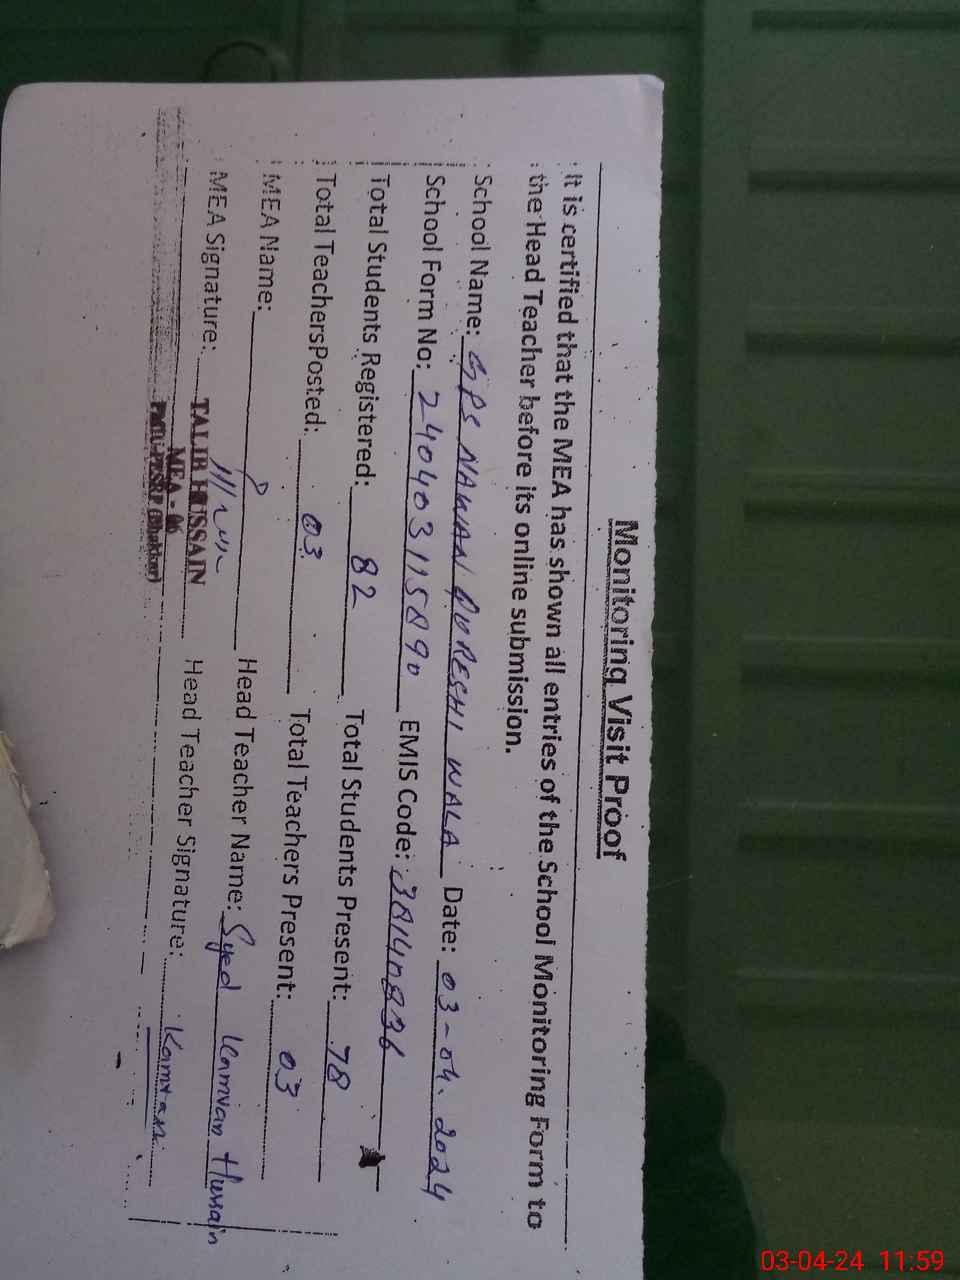 Monitoring Visit Proof
It is certified that the MEA has shown all entries of the School Monitoring Form to
the Head Teacher before its online submission.
School Name: GPS NAWAN QURESHI WALA Date: 03-04.2024
School Form No: 240403115890 EMIS Code: 38140836
Total Students Registered: 82 Total Students Present: 78
Total TeachersPosted: 03 Total Teachers Present: 03
MEA Name: Head Teacher Name: Syed Kamran Hussain
MEA Signature: Head Teacher Signature: Kamran
TALIB HUSSAIN
MEA - 06
PMIU-PESRP (Bhakkar)
03-04-24 11:59